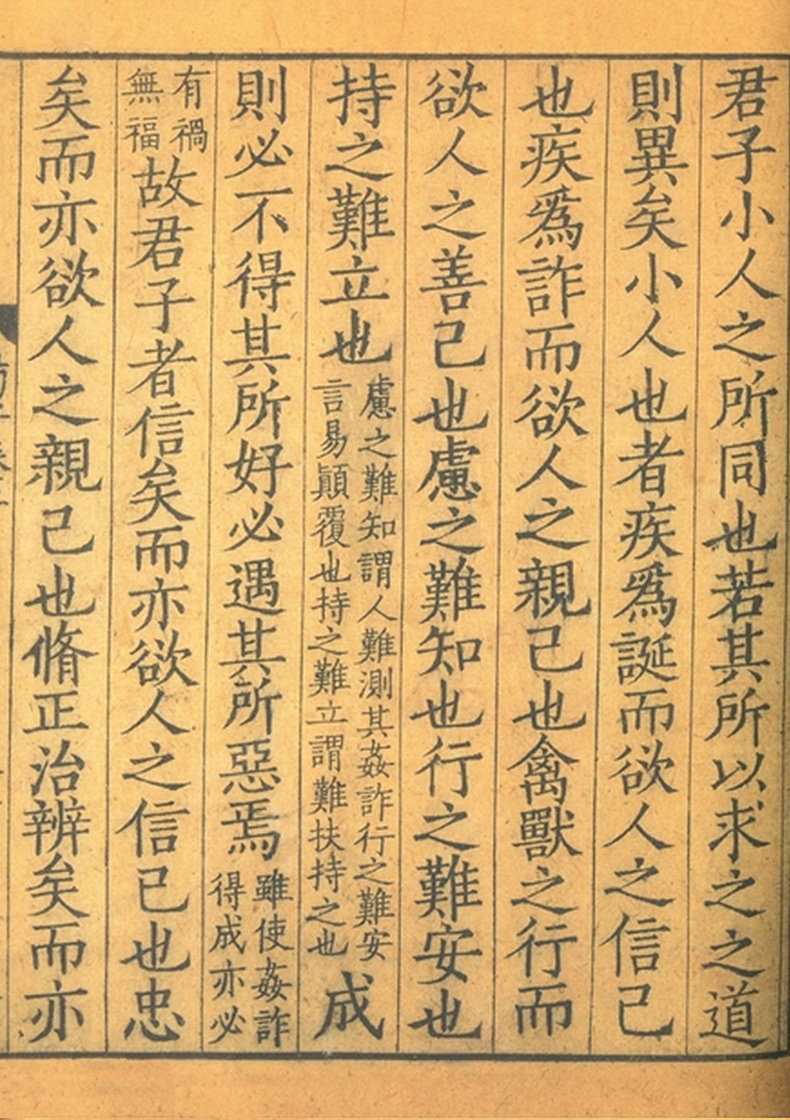 君子小人之所同也若其所以求之之道
則異矣小人也者疾爲誕而欲人之信己
也疾爲詐而欲人之親己也禽獸之行而
欲人之善己也慮之難知也行之難安也
持之難立也
慮之難知謂人難測其姦詐行之難安
言易顚覆也持之難立謂難扶持之也
成
則必不得其所好必遇其所惡焉
雖使姦詐
得成亦必
有禍
無福
故君子者信矣而亦欲人之信己也忠
矣而亦欲人之親己也脩正治辨矣而亦